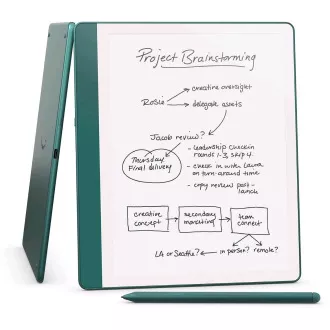 Project Brainstorming
creative oversight
Rosie
delegate assets
Jacob review?
Thursday
Final delivery
- leadership check in
rounds 1-3, skip 4.
- check in with Laura
on turn-around time
- copy review post-
launch
creative
concept
secondary
marketing
team
connect
LA or Seattle?
in person?
remote?